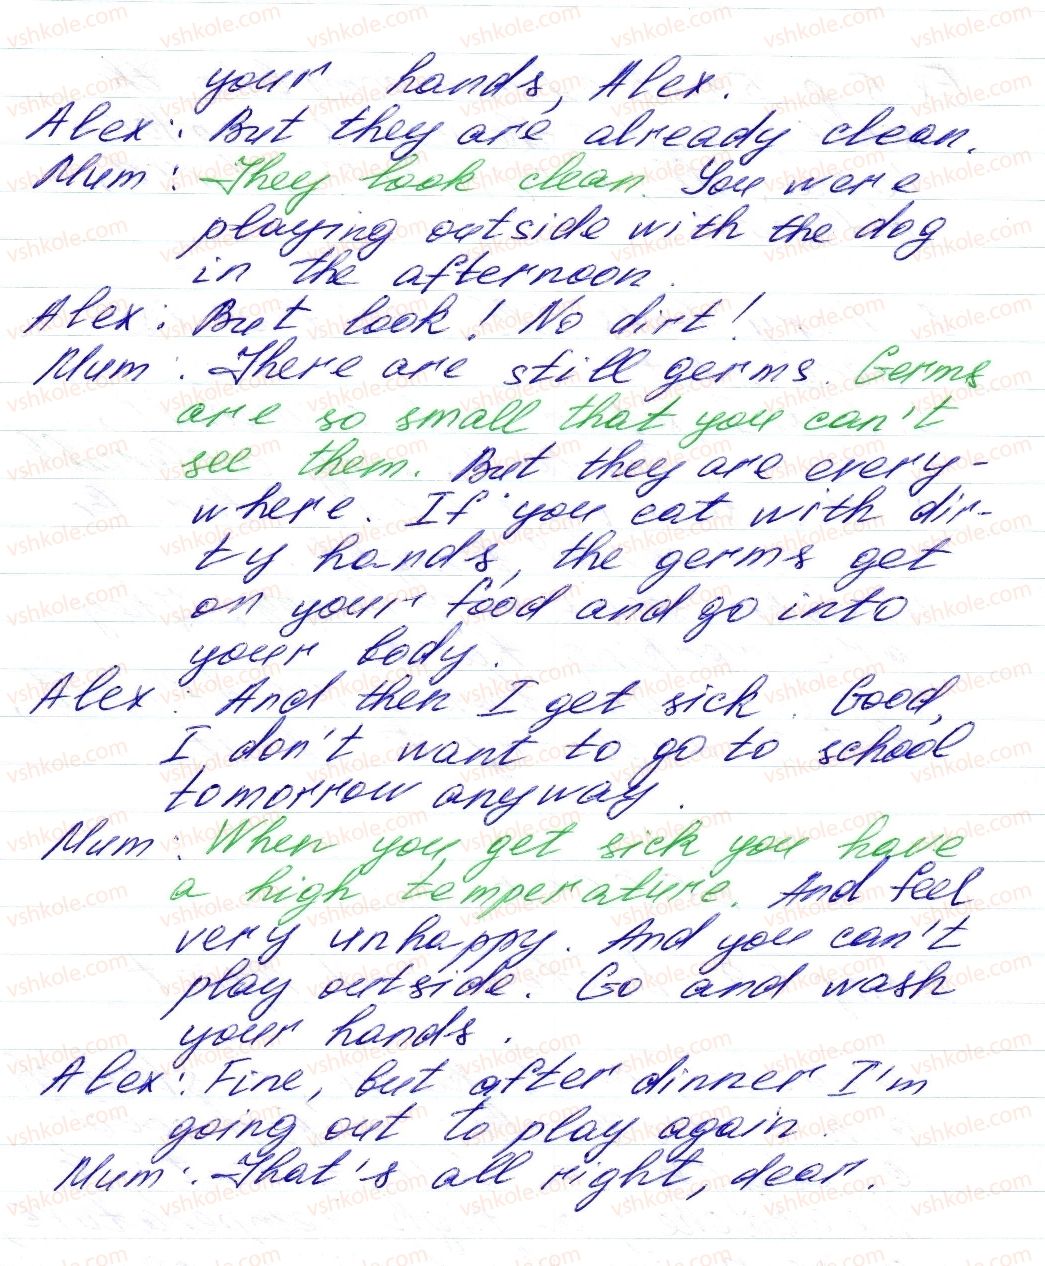 your hands, Alex.
Alex: But they are already clean.
Mum: They look clean. You were
playing outside with the dog
in the afternoon.
Alex: But look! No dirt!
Mum: There are still germs. Germs
are so small that you can't
see them. But they are every-
where. If you eat with dir-
ty hands, the germs get
on your food and go into
your body.
Alex: And then I get sick. Good,
I don't want to go to school
tomorrow anyway.
Mum: When you get sick you have
a high temperature. And feel
very unhappy. And you can't
play outside. Go and wash
your hands.
Alex: Fine, but after dinner I'm
going out to play again.
Mum: That's all right, dear.